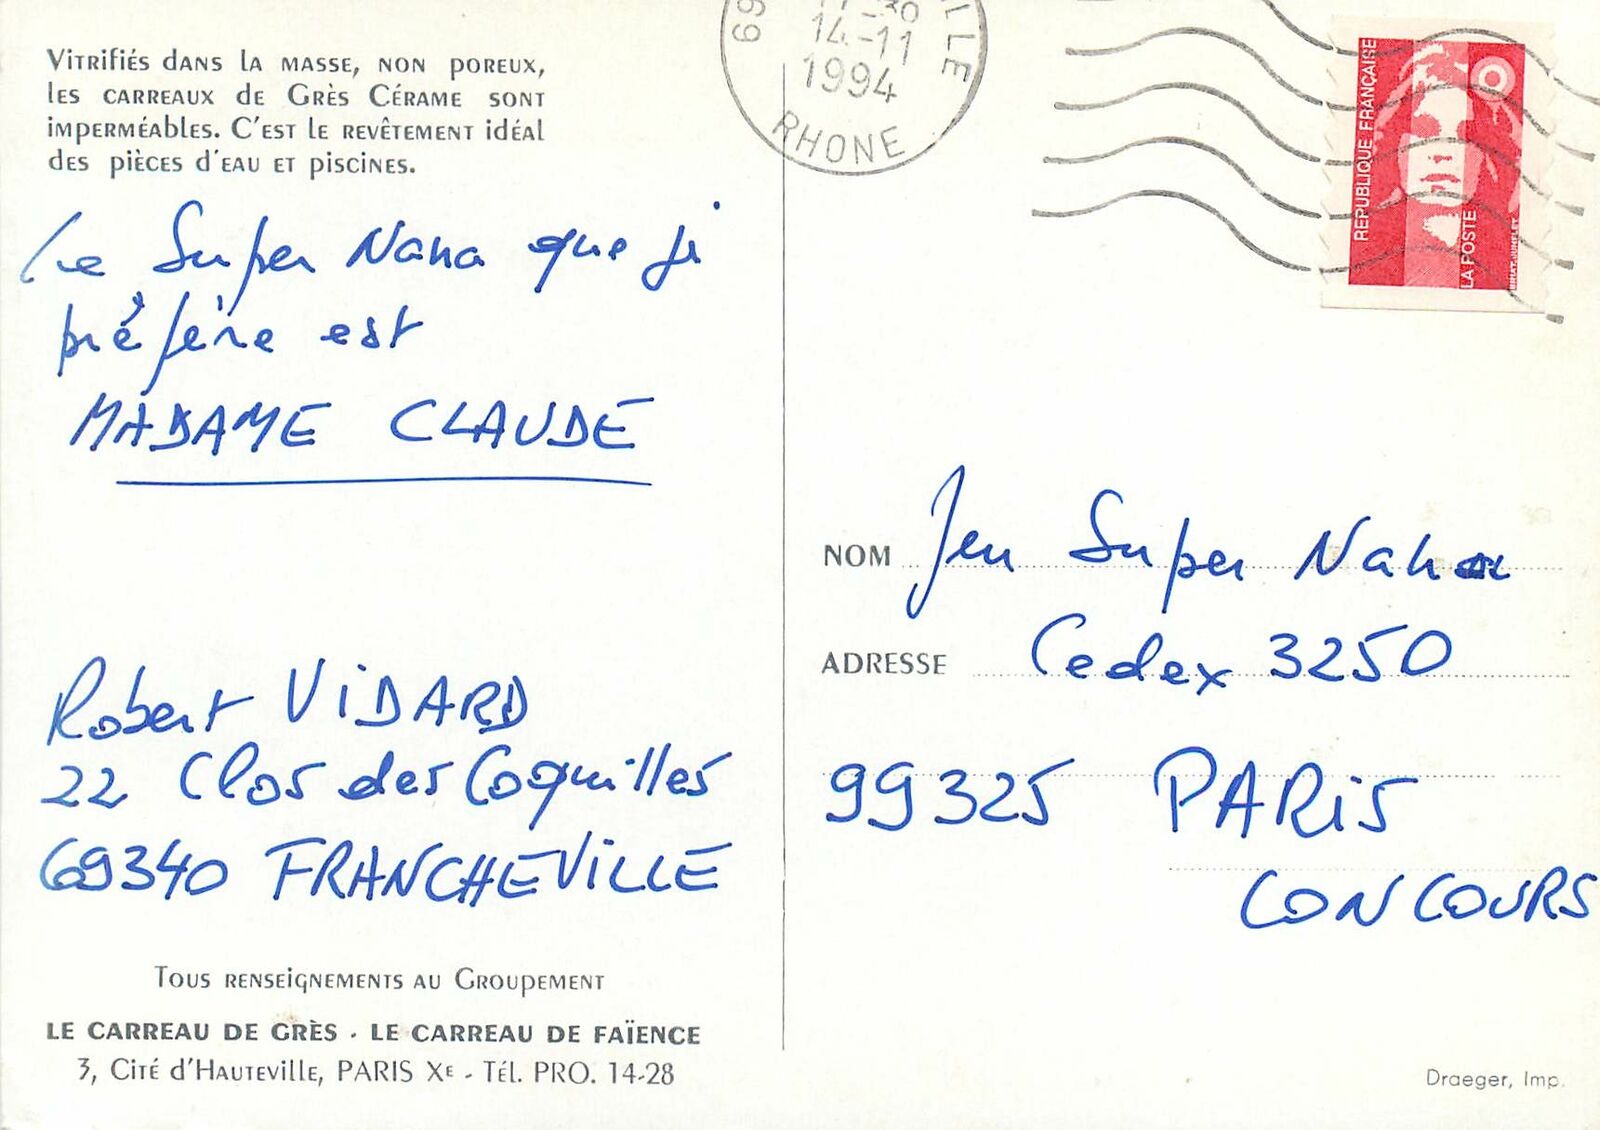 Vitrifiés dans la masse, non poreux,
les carreaux de Grès Cérame sont
imperméables. C'est le revêtement idéal
des pièces d'eau et piscines.
Le Super Nana que je
préfère est
MADAME CLAUDE
Robert ViDARD
22 Clos des Coquilles
69340 FRANCHEViLLE
Tous renseignements au Groupement
LE CARREAU DE GRÈS - LE CARREAU DE FAÏENCE
3, Cité d'Hauteville, PARIS Xe - Tél. PRO. 14-28
69 LLE
14-11
1994
RHONE
RÉPUBLIQUE FRANÇAISE
LA POSTE
BRIAT-JUMELET
NOM Jeu Super Nana
ADRESSE Cedex 3250
99325 PARiS
CONCOURS
Draeger, Imp.